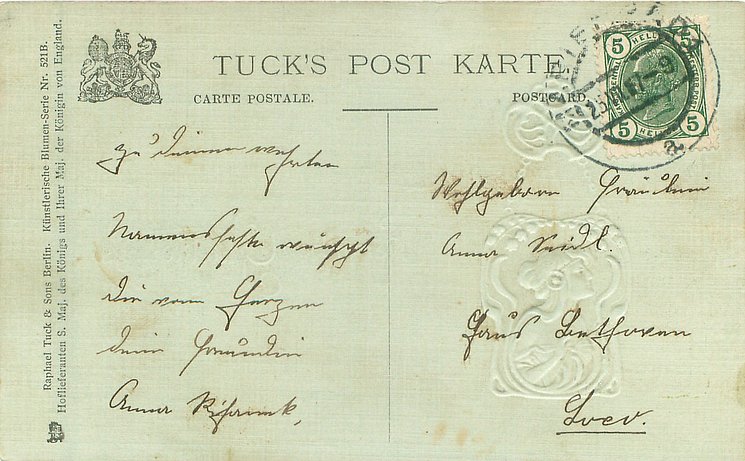 Raphael Tuck & Sons Berlin. Künstlerische Blumen-Serie Nr. 521B.
Hoflieferanten S. Maj. des Königs und Ihrer Maj. der Königin von England.
TUCK'S POST KARTE.
CARTE POSTALE.
POSTCARD.
5 HELLER 5
5 HELLER 5
zu deinem werten
Namensfeste wünscht
dir vom Herzen
deine Freundin
Anna
Wohlgeborn Fräulein
Anna Seidl.
Haus Bethoven